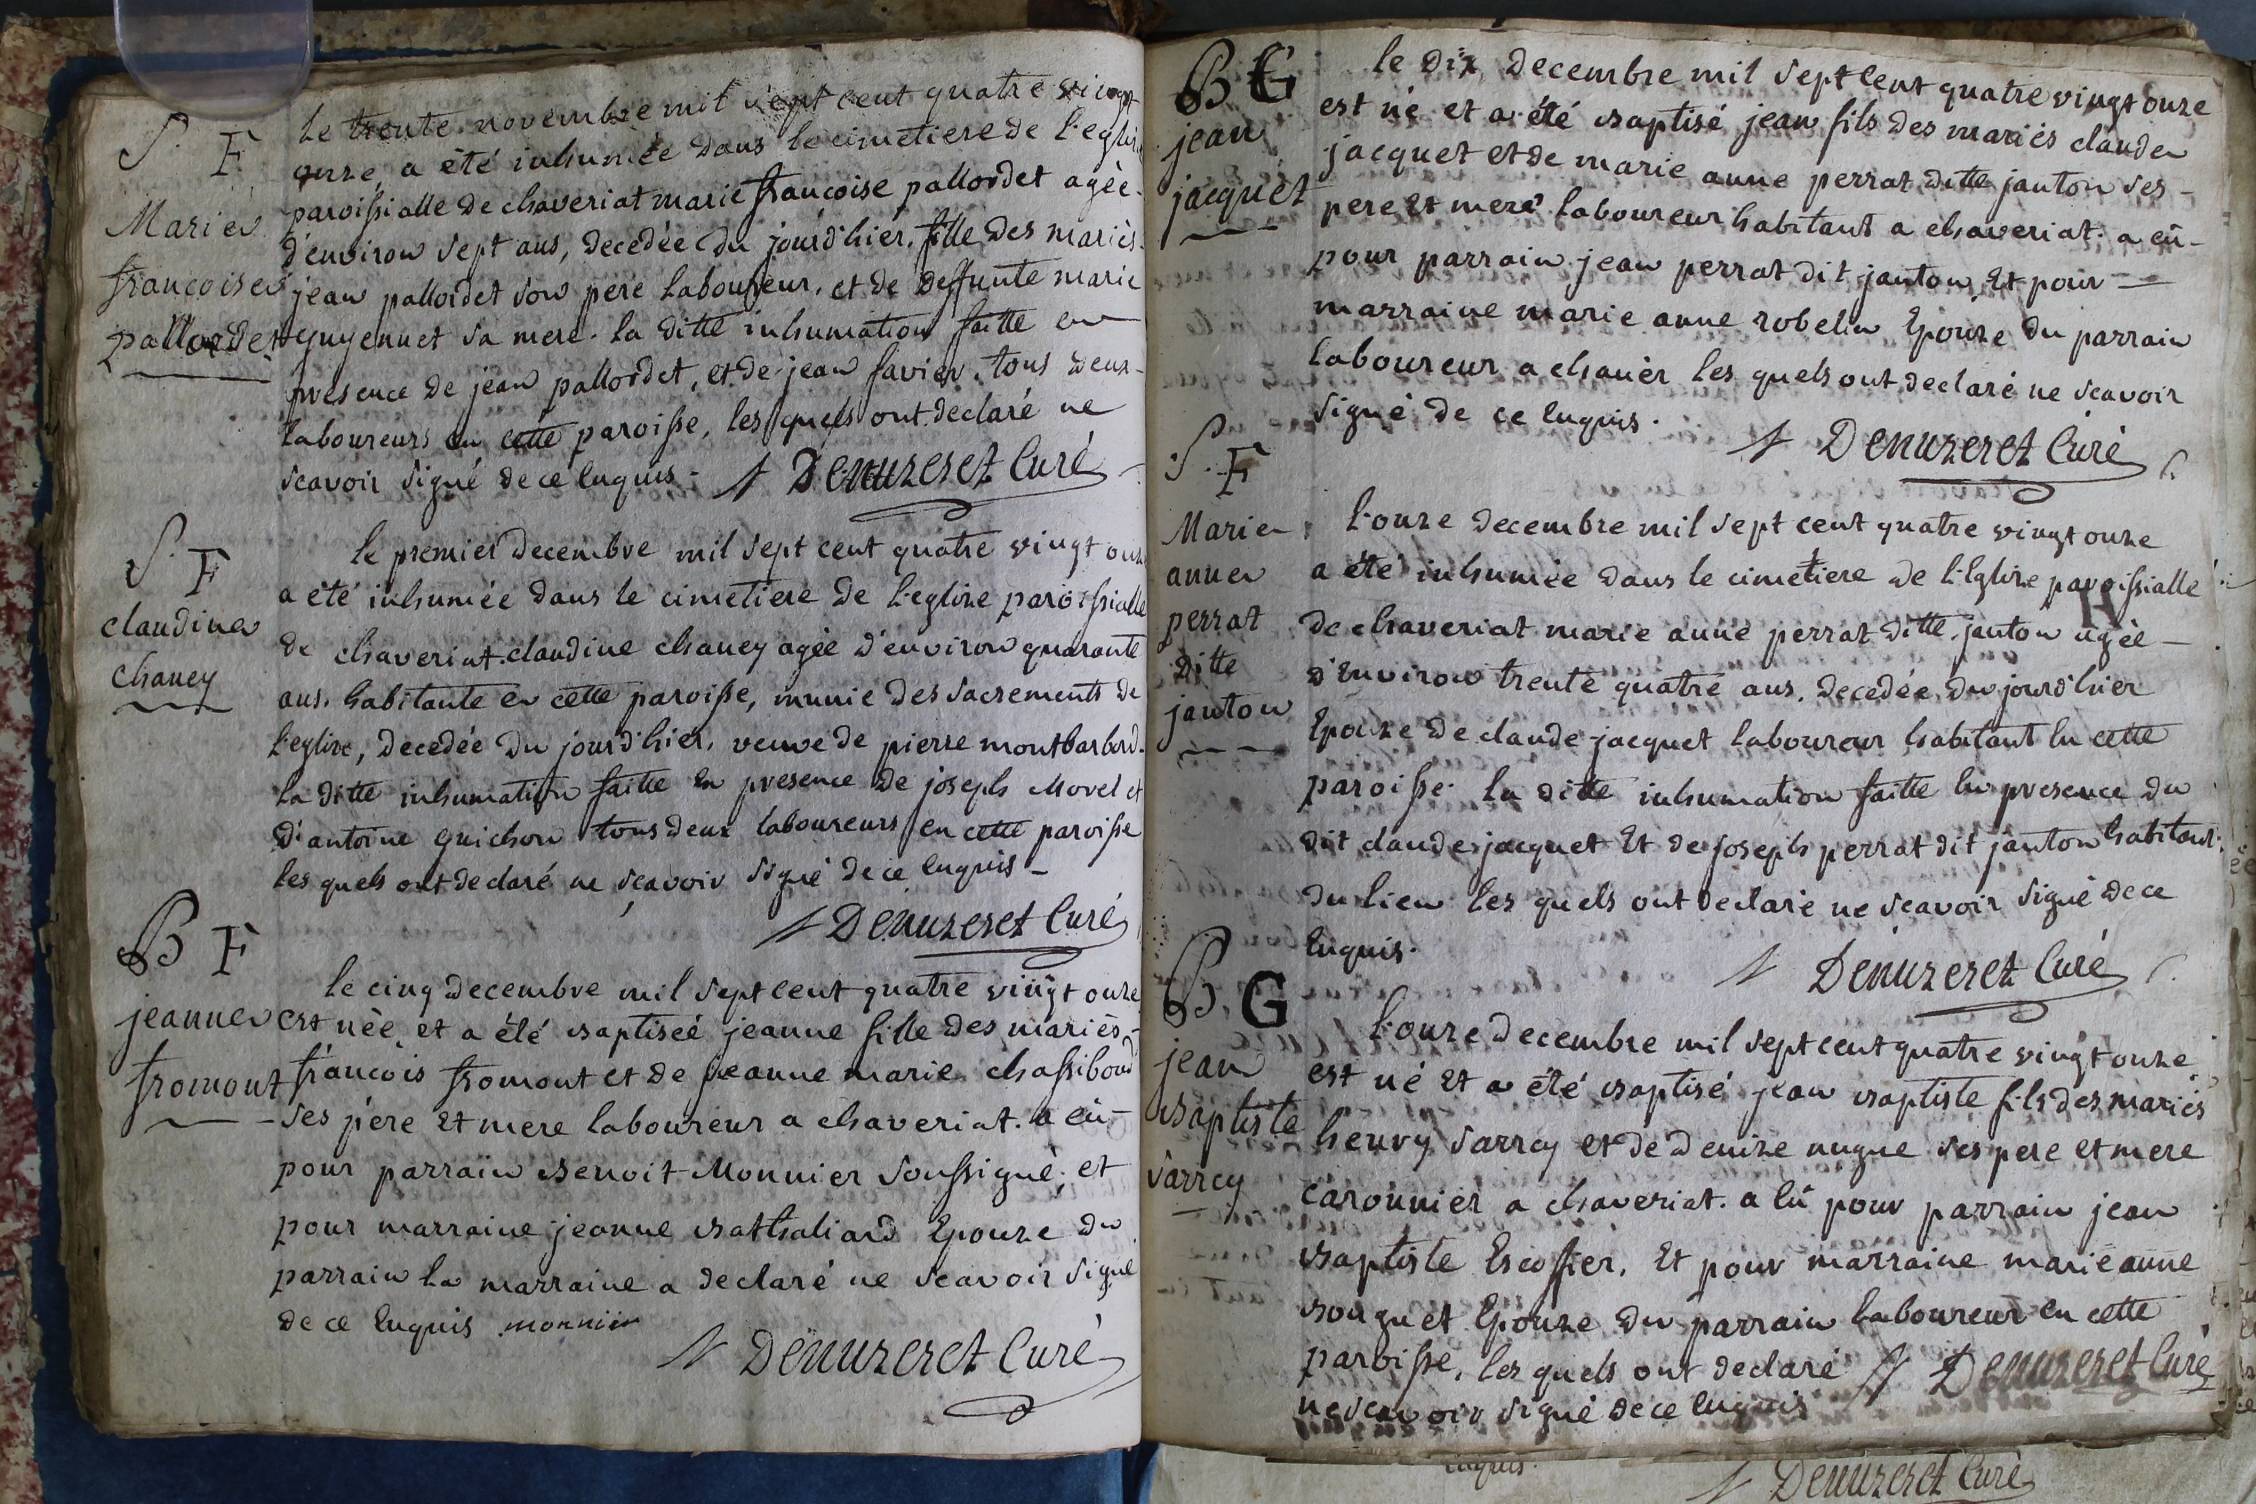 S. F
Marie
francoise
pallordet
Le trente novembre mil sept cent quatre vingt
onze a été inhumée dans le cimetiere de l'eglise
paroissialle de chaveriat marie francoise pallordet agée
d'environ sept ans, decedée du jourd'hier, fille des mariés
jean pallordet son pere laboureur, et de deffunte marie
guyennet sa mere. la ditte inhumation faitte en
presence de jean pallordet, et de jean favier, tous deux
laboureurs en cette paroisse, les quels ont declaré ne
scavoir signé de ce enquis - Denuzeret Curé
S. F
claudine
chaney
le premier decembre mil sept cent quatre vingt onze
a été inhumée dans le cimetiere de l'eglize paroissialle
de chaveriat claudine chaney agée d'environ quarante
ans, habitante en cette paroisse, munie des sacrements de
l'eglize, decedée du jourd'hier, veuve de pierre montbarbard.
la ditte inhumation faitte en presence de joseph Morel et
d'antoine guichon tous deux laboureurs en cette paroisse
les quels ont declaré ne scavoir signé de ce enquis -
Denuzeret Curé
B F
jeanne
fromont
le cinq decembre mil sept cent quatre vingt onze
est née et a été baptiseé jeanne fille des mariés
francois fromont et de jeanne marie chassiboud
ses pere et mere laboureur a chaveriat. a eû
pour parrain benoit Monnier soussigné, et
pour marraine jeanne bathaliard Epouze du
parrain la marraine a declaré ne scavoir signé
de ce enquis monnier
Denuzeret Curé
B G
jean
jacquet
le dix decembre mil sept cent quatre vingt onze
est né et a été baptisé jean fils des mariés claude
jacquet et de marie anne perrat ditte janton ses
pere et mere laboureur habitant a chaveriat. a eû
pour parrain jean perrat dit janton, Et pour
marraine marie anne robelin Epouze du parrain
laboureur a chanèr les quels ont declaré ne scavoir
signé de ce enquis.
Denuzeret Curé
S. F
Marie
anne
perrat
ditte
janton
l'onze decembre mil sept cent quatre vingt onze
a été inhumée dans le cimetiere de l'Eglize paroissialle
de chaveriat marie anne perrat ditte janton agée
d'environ trente quatre ans, decedée du jourd'hier
Epouze de claude jacquet laboureur habitant en cette
paroisse. la ditte inhumation faitte en presence du
dit claude jacquet Et de joseph perrat dit janton habitant
du lieu les quels ont declaré ne scavoir signé de ce
enquis.
Denuzeret Curé
B. G
jean
baptiste
sarrey
l'onze decembre mil sept cent quatre vingt onze
est né Et a été baptisé jean baptiste fils des mariés
henry sarrey et de denize nugue ses pere et mere
caronnier a chaveriat. a eû pour parrain jean
baptiste Escoffier, Et pour marraine marie anne
bouguet Epouze du parrain laboureur en cette
paroisse, les quels ont declaré Denuzeret Curé
ne scavoir signé de ce enquis
enquis.
Denuzeret Curé